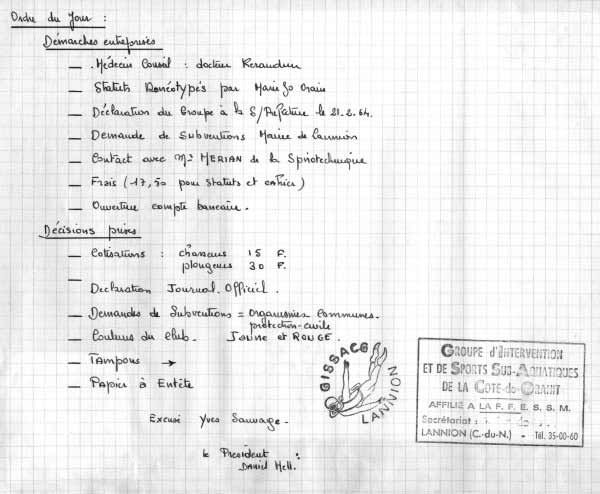 Ordre du Jour :
Démarches entreprises
— Médecin Conseil : docteur Kerandrun
— Statuts Ronéotypés par Marie Jo
— Déclaration du Groupe à la S/Préfecture le 21.2.64.
— Demande de Subventions Mairie de Lannion
— Contact avec Mr MERIAN de la Spirotechnique
— Frais (17,50 pour statuts et cahier)
— Ouverture compte bancaire.
Décisions prises
— Cotisations : chasseurs 15 F.
plongeurs 30 F.
— Declaration Journal Officiel.
— Demandes de Subventions = Organismes Communes.
protection-civile
— Couleurs du Club. Jaune et ROUGE.
— Tampons →
— Papier à Entête
Excusé Yves Sauvage.
le Président :
Daniel Mell.
GISSACG
LANNION
GROUPE d'INTERVENTION
ET DE SPORTS SUB-AQUATIQUES
DE LA COTE-de-GRANIT
AFFILIÉ A LA F. F. E. S. S. M.
Secrétariat :
LANNION (C.-du-N.) - Tél. 35-00-60